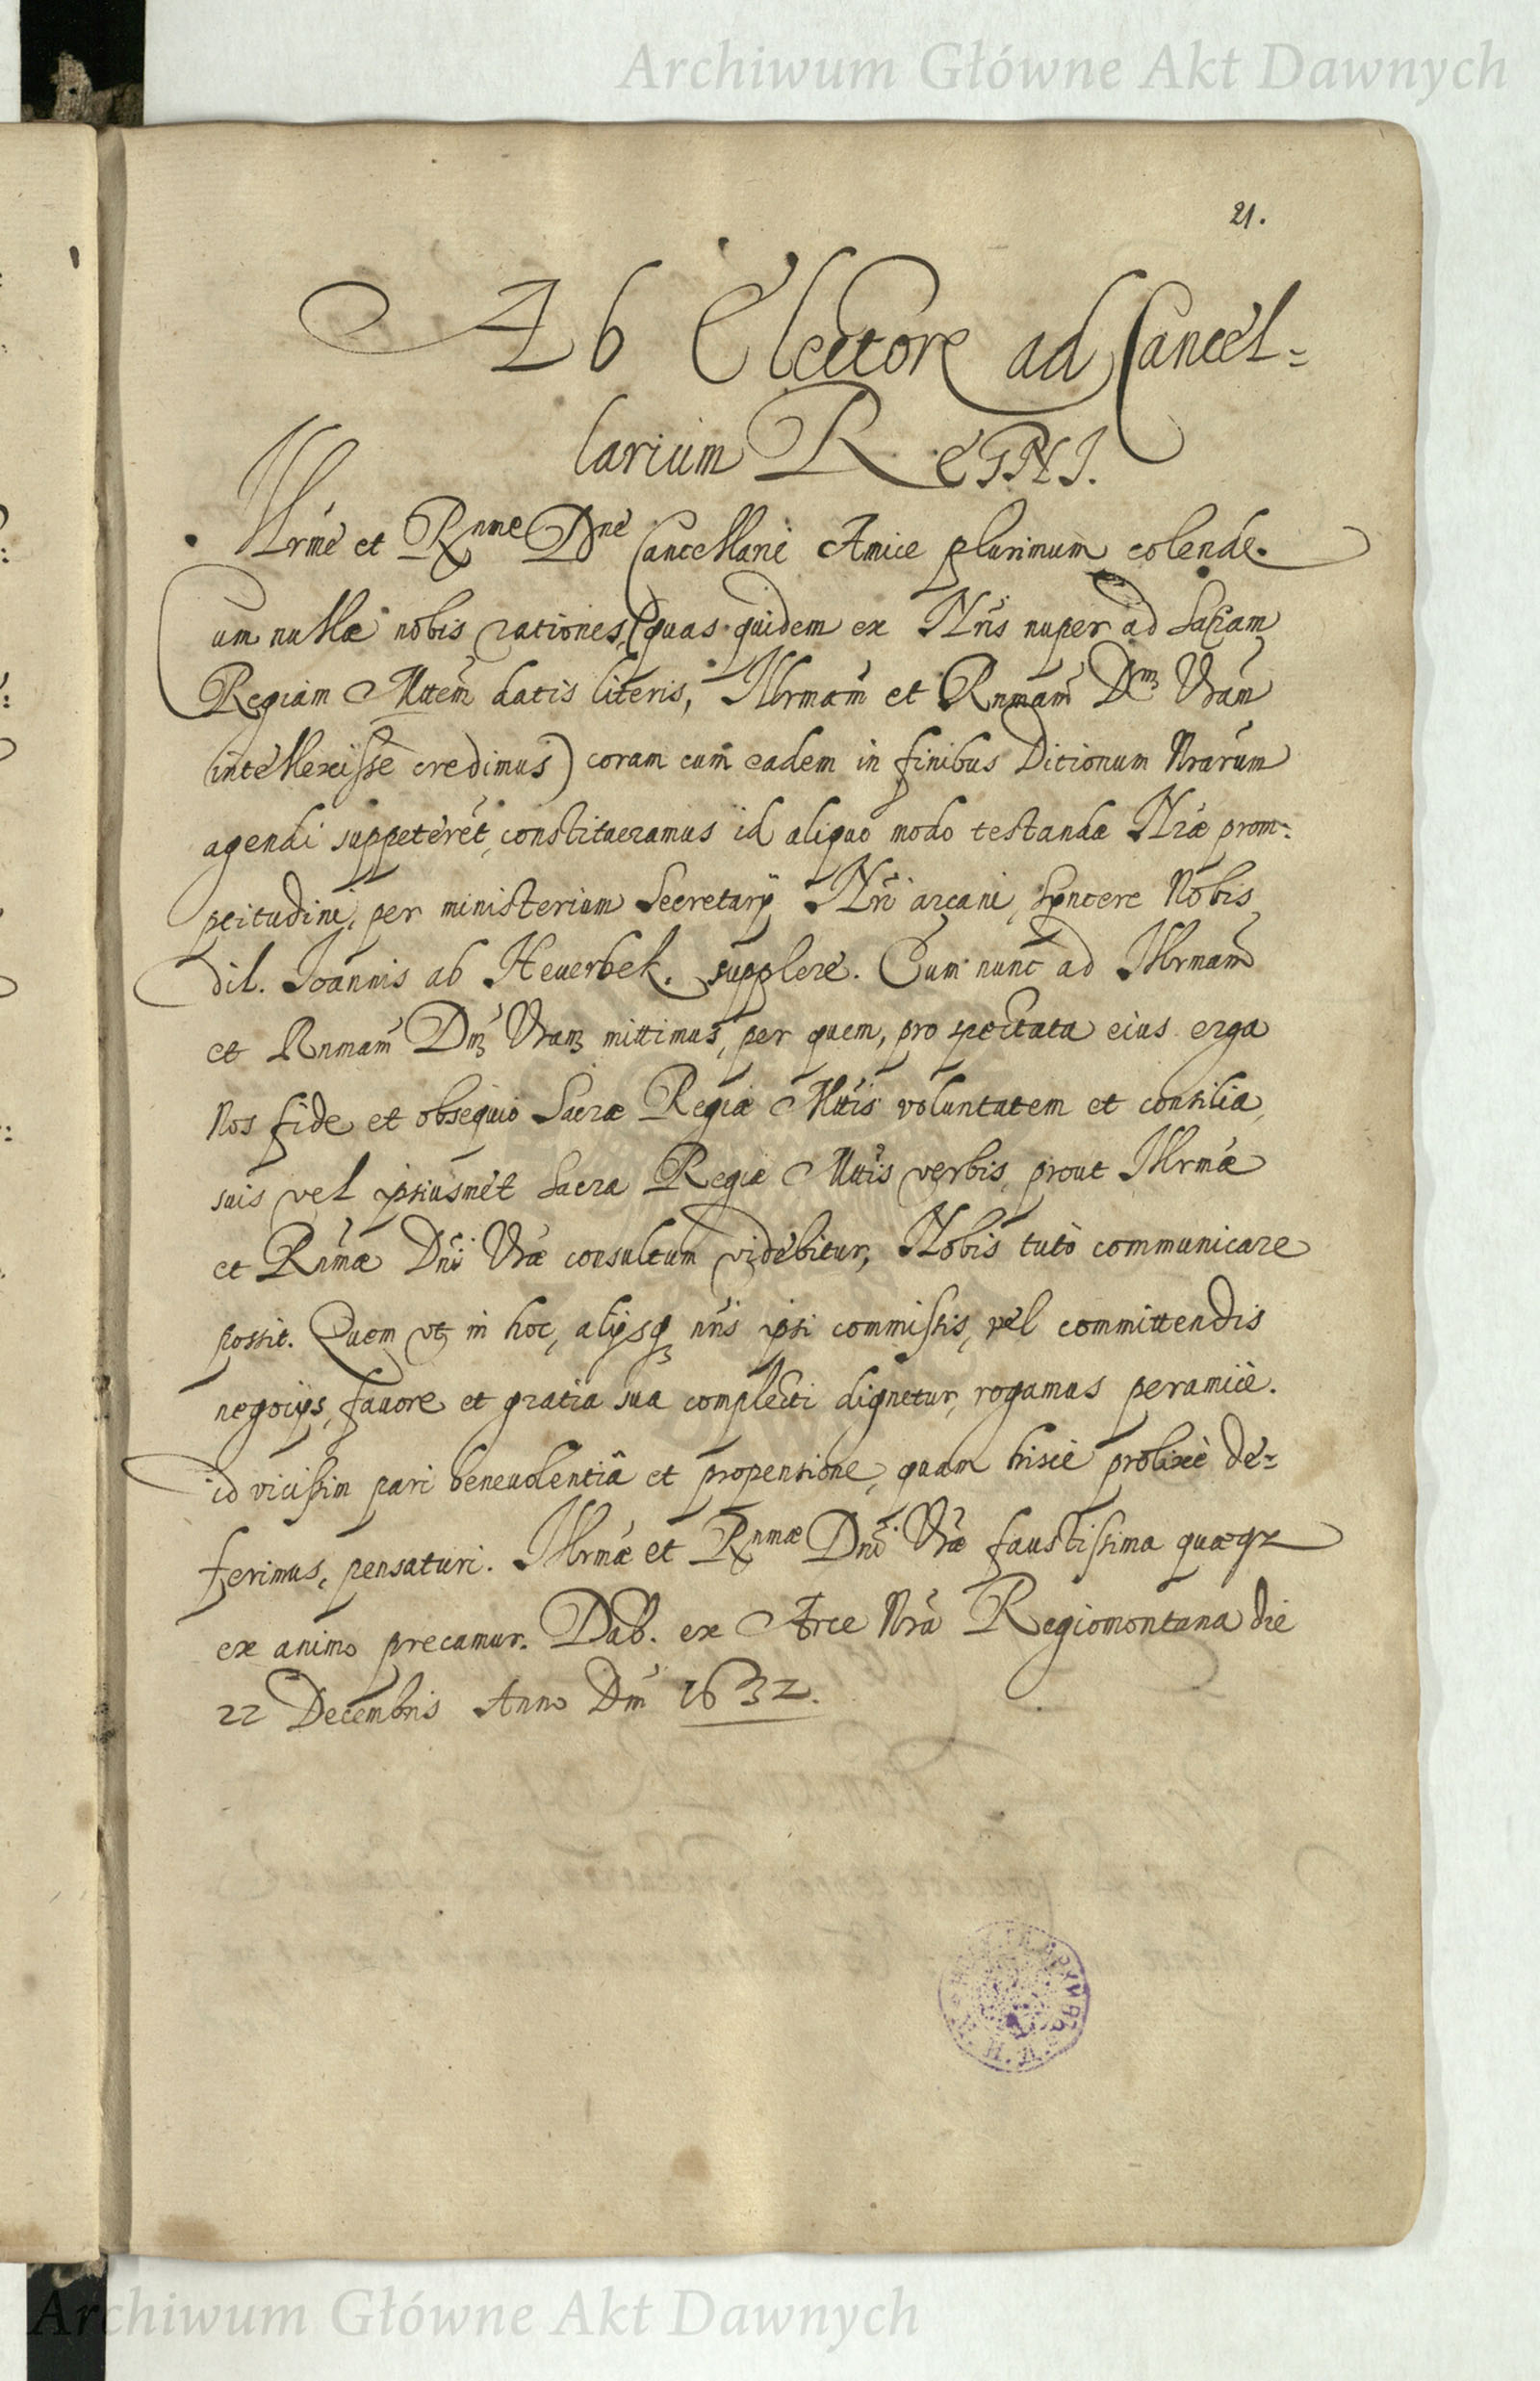 Archiwum Główne Akt Dawnych
21.
Ab Electore ad Cancel=
larium REGNI.
Illrme et Rnme Dne Cancellarie Amice plurimum colende.
Cum nullæ nobis rationes, (quas quidem ex Nris nuper ad Sacram
Regiam Mttem datis literis, Illrmam et Rnmam Dm Vram
intellexisse credimus) coram cum eadem in finibus Ditionum Nrarum
agendi suppeteret, constitueramus id aliquo modo testandæ Nræ prom=
ptitudini, per ministerium Secretarij Nri arcani, syncere Nobis
dil. Joannis ab Heverbek. supplere. Eum nunc ad Illrmam
et Rnmam Dm Vram mittimus, per quem, pro spectata eius erga
Nos fide et obsequio Sacræ Regiæ Mttis voluntatem et consilia,
suis vel ipsiusmet Sacræ Regiæ Mttis verbis, prout Illrmæ
et Rnmæ Dni Vræ consultum videbitur, Nobis tutò communicare
possit. Quem vt in hoc, alijsq nris ipsi commissis, vel committendis
negocijs, favore et gratia sua complecti dignetur, rogamus peramicè.
id vicissim pari benevolentiâ et propensione, quam hisce prolixè de=
ferimus, pensaturi. Illrmæ et Rnmæ Dni Vræ faustissima quæqz
ex animo precamur. Dab. ex Arce Nra Regiomontana die
22 Decembris Anno Dm 1632.
Archiwum Główne Akt Dawnych